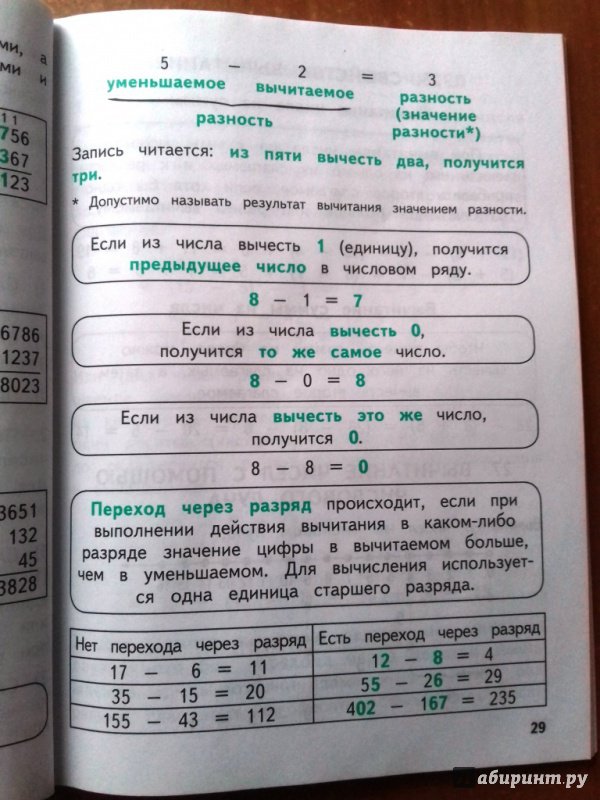 ми, а
ми и
1 1
756
367
123
6786
1237
8023
3651
132
45
3828
5 – 2 = 3
уменьшаемое вычитаемое разность
(значение
разность разности*)
Запись читается: из пяти вычесть два, получится
три.
* Допустимо называть результат вычитания значением разности.
Если из числа вычесть 1 (единицу), получится
предыдущее число в числовом ряду.
8 – 1 = 7
Если из числа вычесть 0,
получится то же самое число.
8 – 0 = 8
Если из числа вычесть это же число,
получится 0.
8 – 8 = 0
Переход через разряд происходит, если при
выполнении действия вычитания в каком-либо
разряде значение цифры в вычитаемом больше,
чем в уменьшаемом. Для вычисления использует-
ся одна единица старшего разряда.
Нет перехода через разряд Есть переход через разряд
17 – 6 = 11 12 – 8 = 4
35 – 15 = 20 55 – 26 = 29
155 – 43 = 112 402 – 167 = 235
29
абиринт.ру